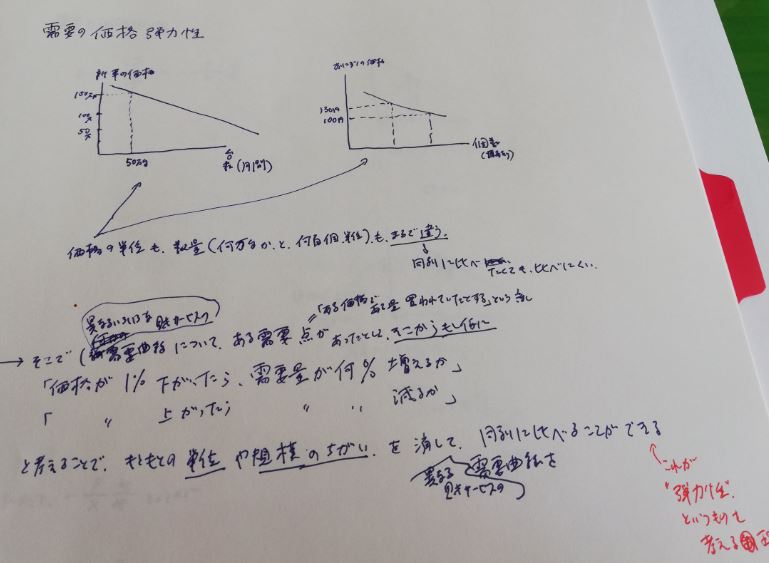 需要の価格弾力性
新車の価格
150万
100万
50万
50万台
台数(月間)
おにぎりの価格
130円
100円
個数
価格の単位も、数量(何万台か、と、何百個単位)も、まるで違う。
同列に比べたくても、比べにくい。
異なるいろいろな財やサービス
「ある価格で、ある量買われていたとする」という意味
→ そこで(需要曲線について、ある需要点があったとして、そこからもし仮に
「価格が1%下がったら、需要量が何%増えるか」
「 〃 上がったら 〃 〃 減るか」
と考えることで、もともとの単位や規模のちがいを消して、同列に比べることができる
異なる財やサービスの
需要曲線を
これが
"弾力性"
というもので
考える